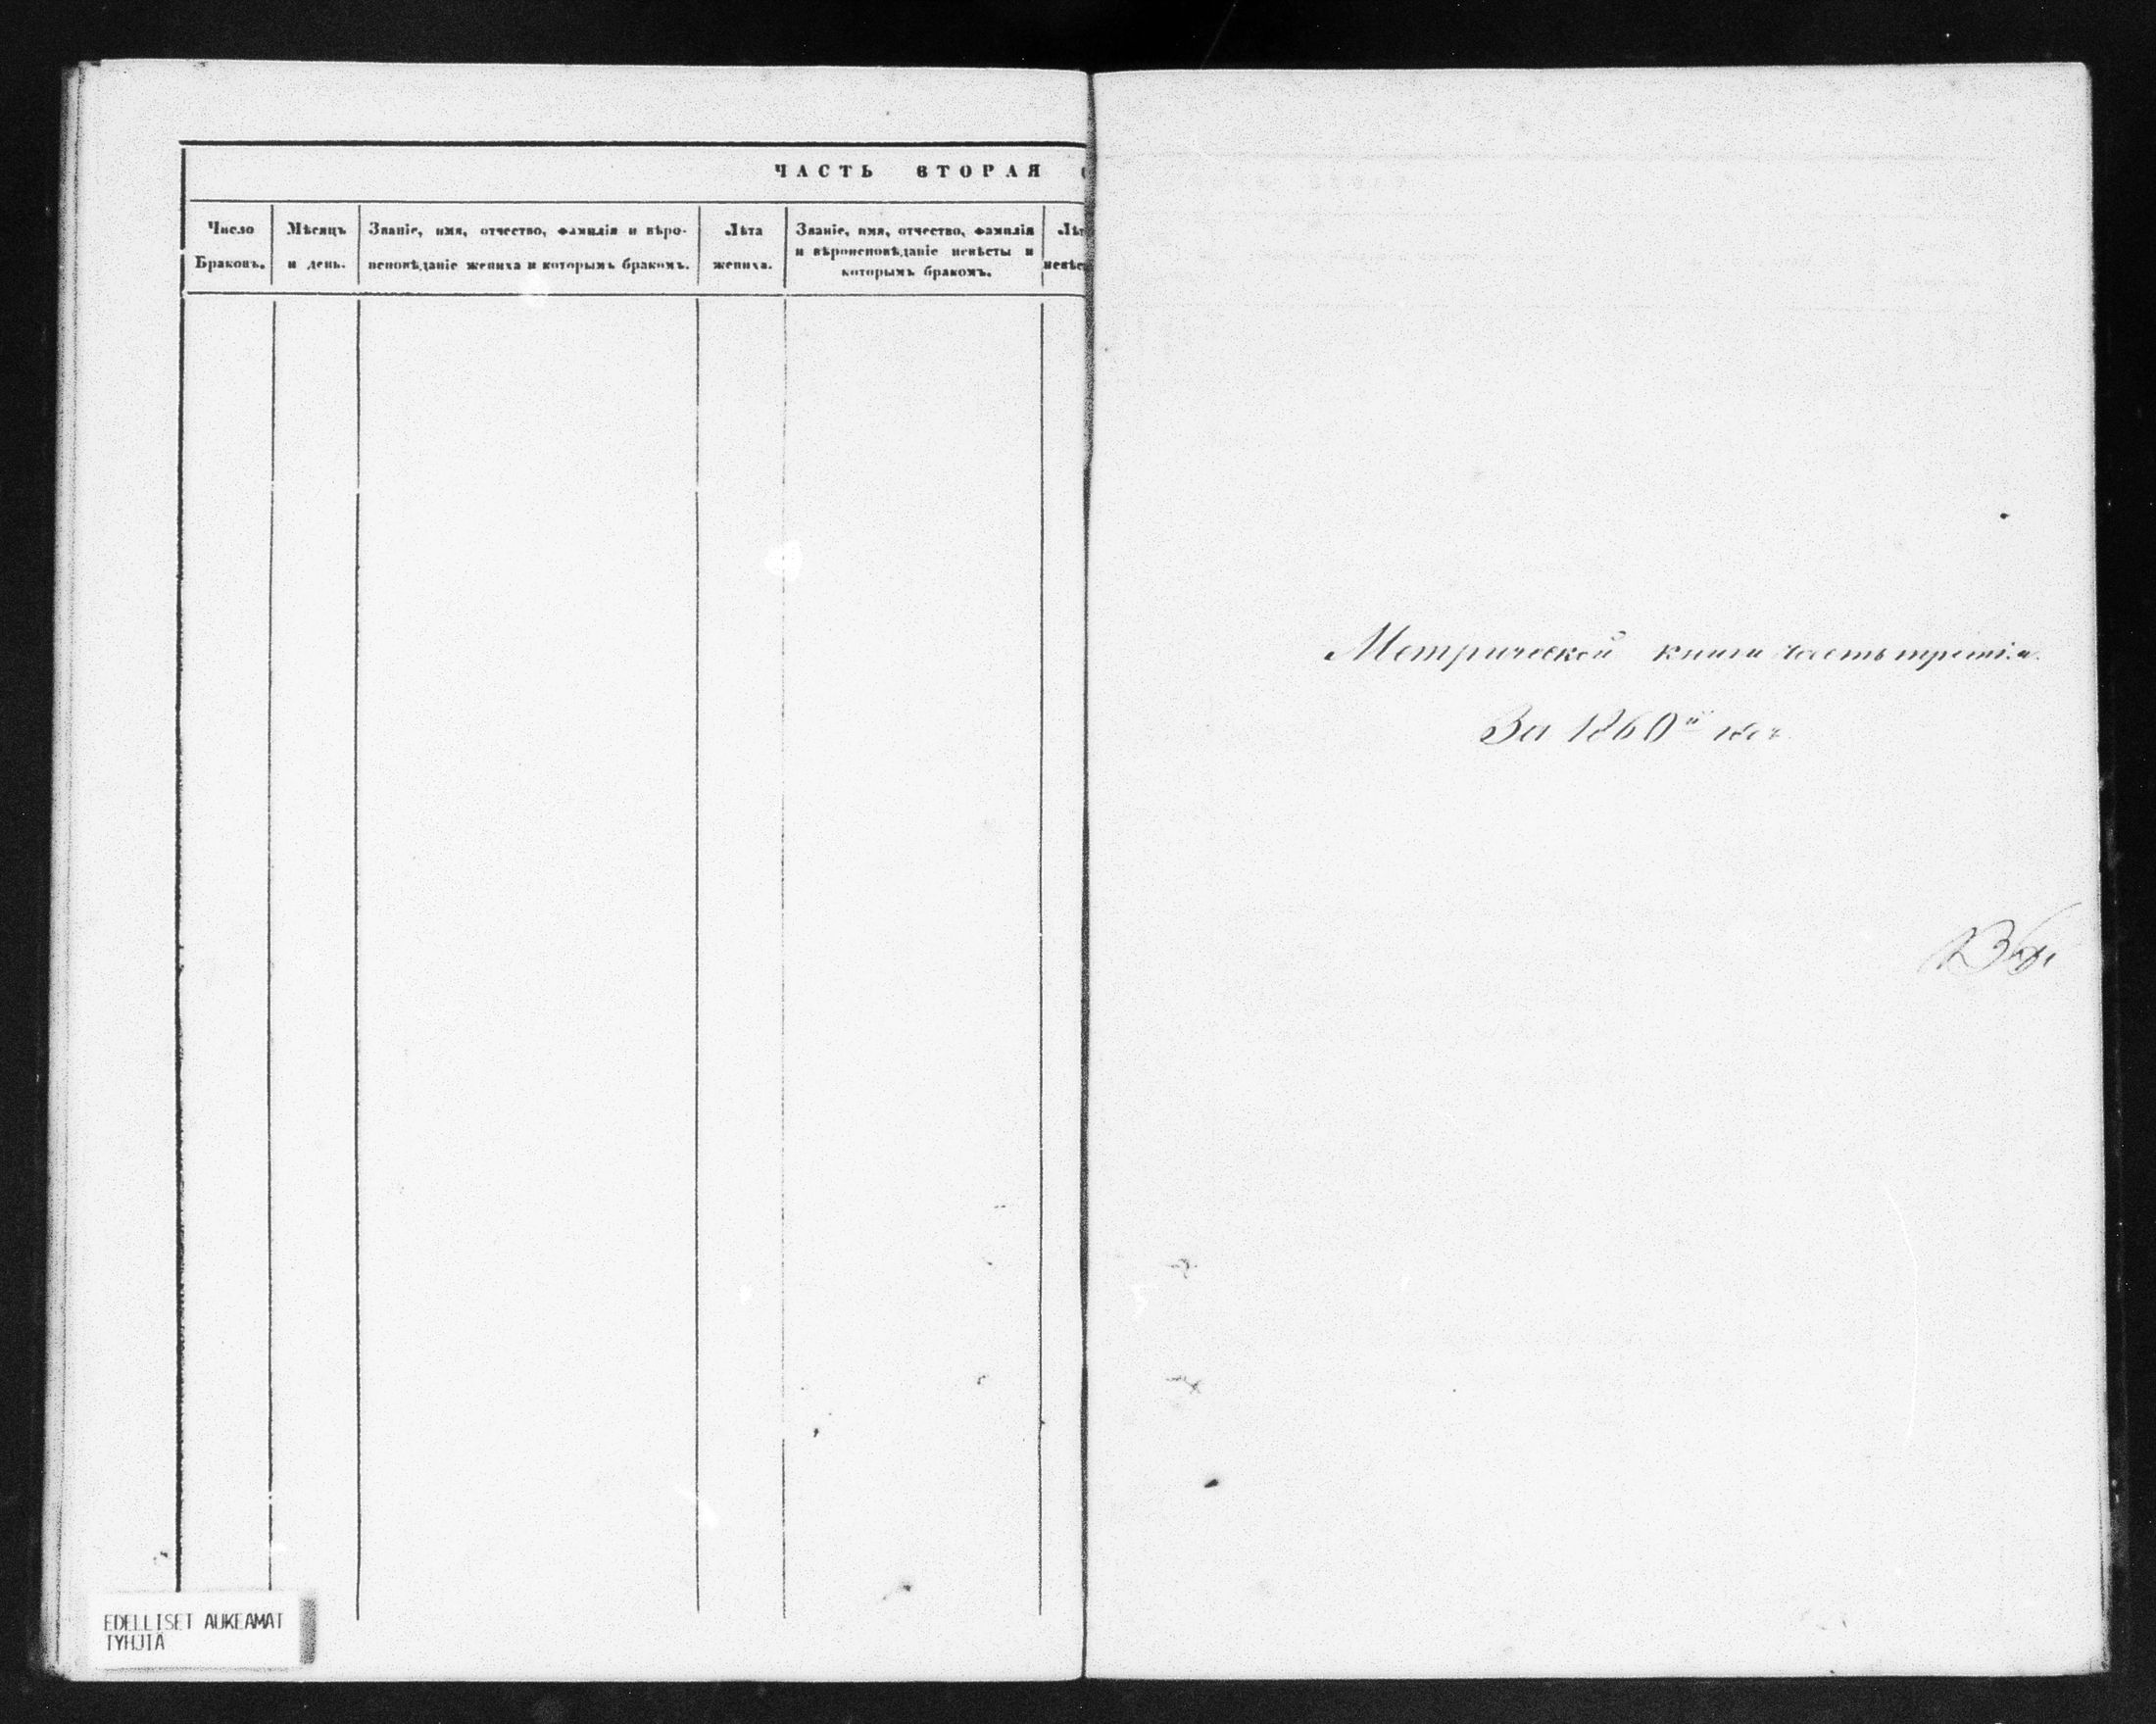 ЧАСТЬ ВТОРАЯ
Число
Браковъ.
Мѣсяцъ
и день.
Званіе, имя, отчество, фамилія и вѣро-
исповѣданіе жениха и которымъ бракомъ.
Лѣта
жениха.
Званіе, имя, отчество, фамилія
и вѣроисповѣданіе невѣсты и
которымъ бракомъ.
Метрической книги часть третія.
За 1860й годъ
EDELLISET AUKEAMAT
TYHJIÄ